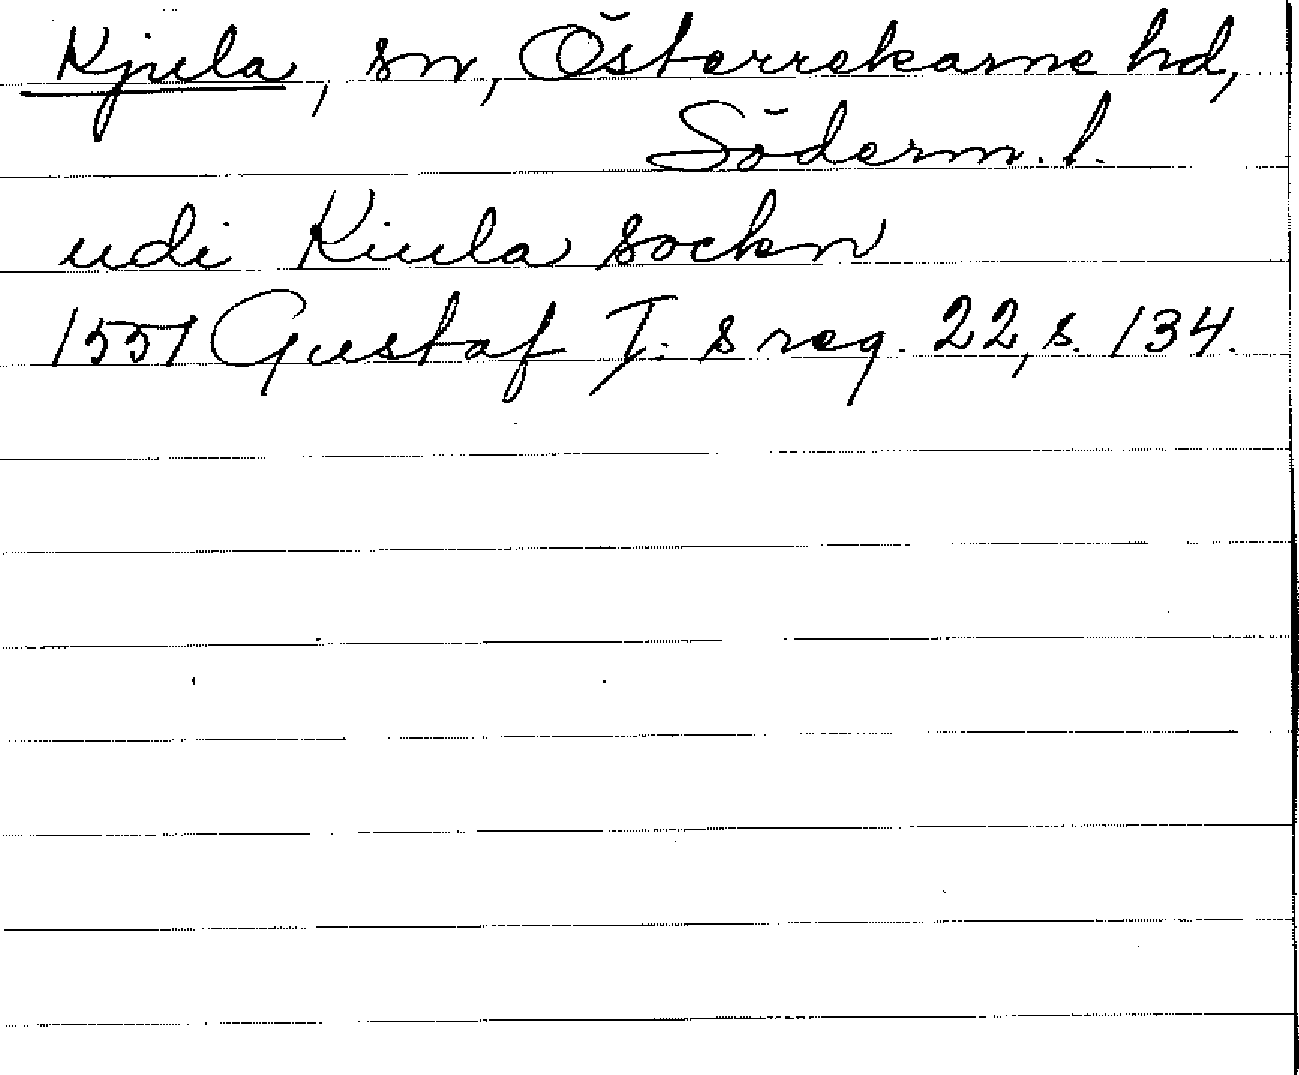 Kjula, sn, Österrekarne hd,
Söderm. l.
udi Kiula sockn
1551 Gustaf I: s reg. 22, s. 134.